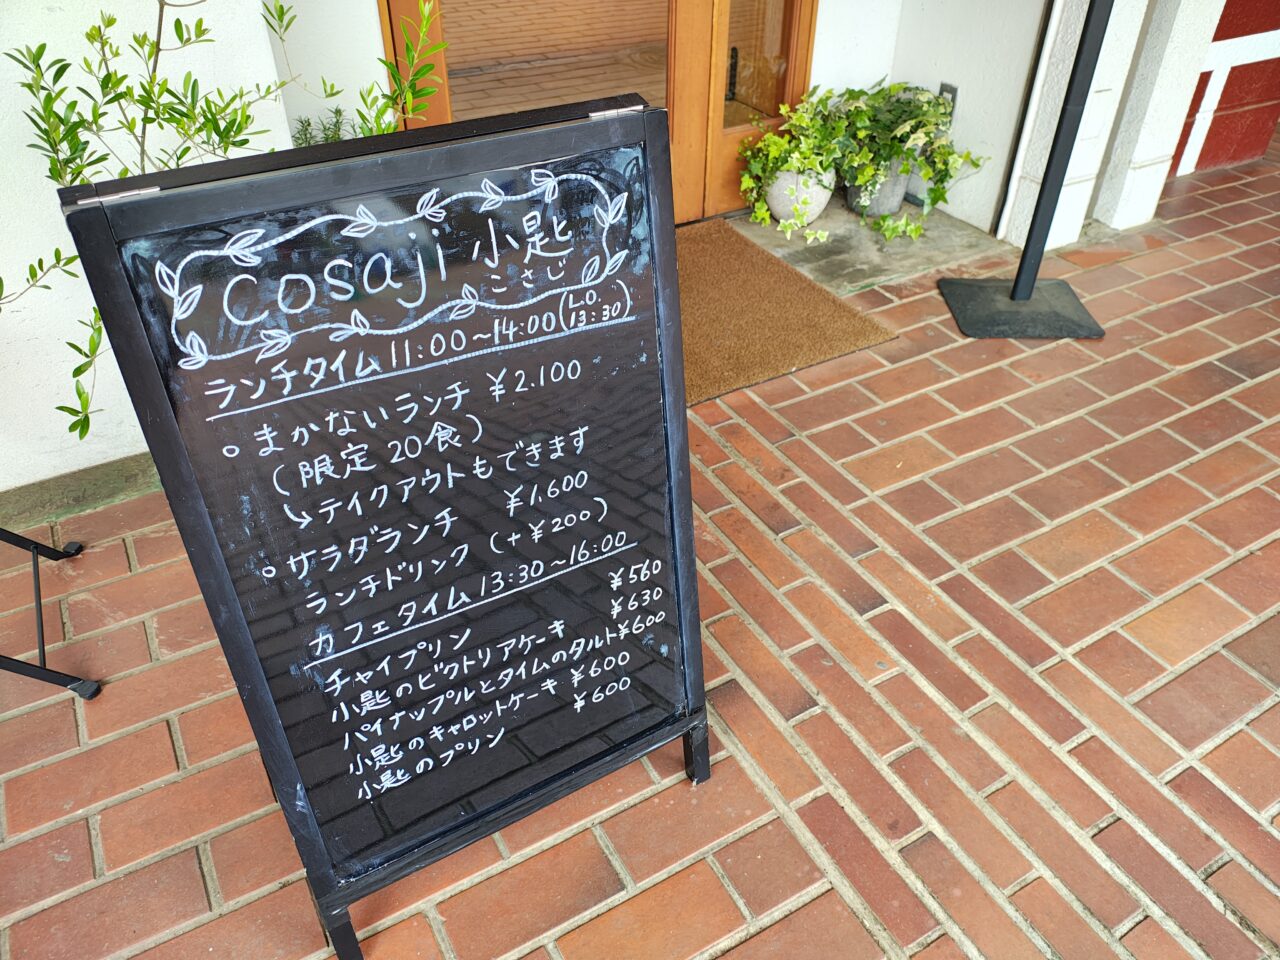 cosaji 小匙
こさじ
ランチタイム 11:00～14:00 (L.O. 13:30)
○ まかないランチ ¥2.100
(限定 20食)
↳ テイクアウトもできます
○ サラダランチ ¥1,600
ランチドリンク (+¥200)
カフェタイム 13:30～16:00
チャイプリン ¥560
小匙のビクトリアケーキ ¥630
パイナップルとタイムのタルト ¥600
小匙のキャロットケーキ ¥600
小匙のプリン ¥600